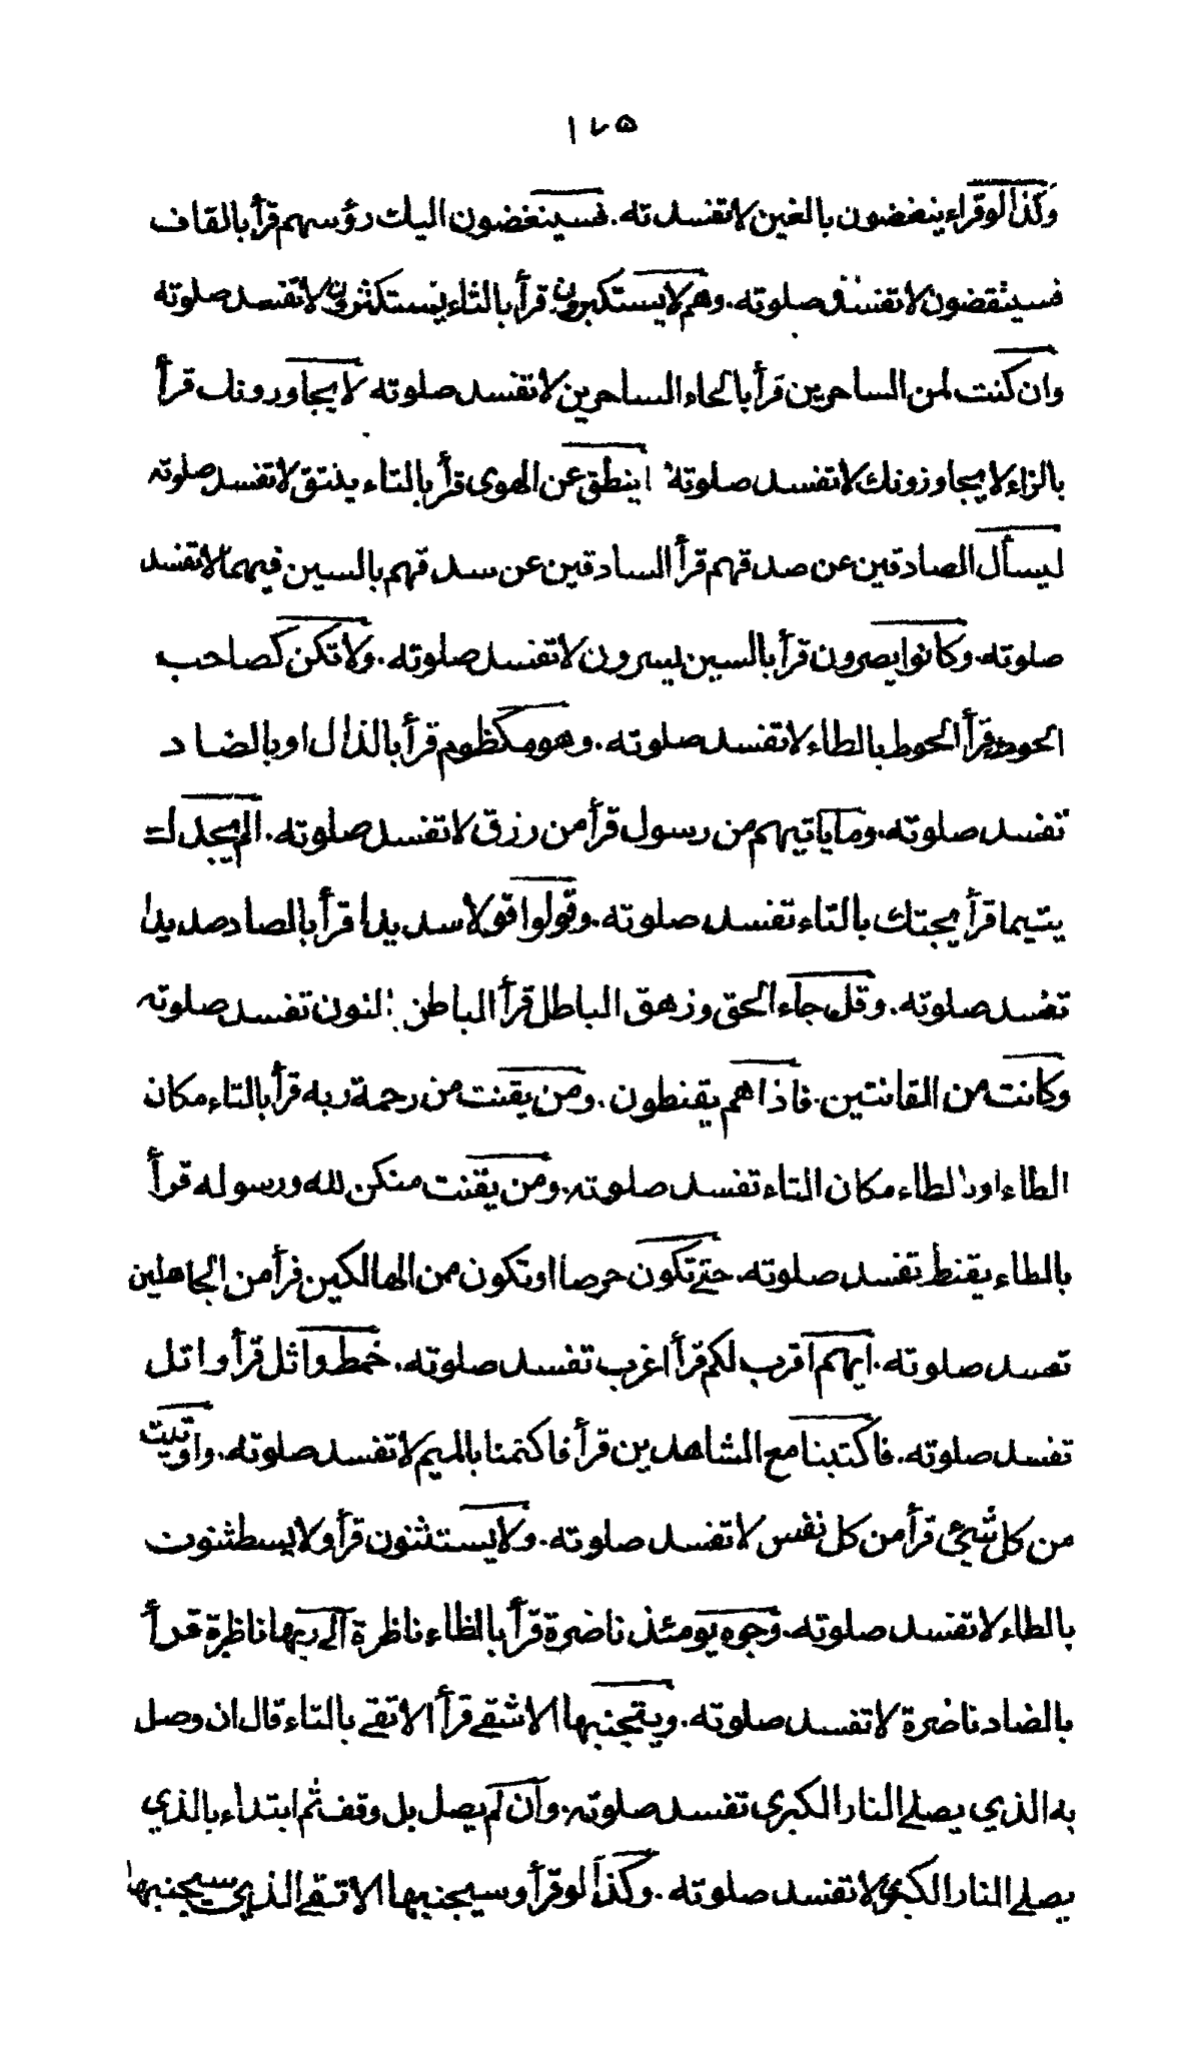 ١٦٥
وكذا لو قراء ينغضون بالغين لا تفسد ته. فسينغضون اليك رؤسهم قرأ بالقاف
فسينقضون لا تفسد صلوته. وهم لا يستكبرون قرأ بالثاء يستكثرون لا تفسد صلوته
وان كنت لمن الساخرين قرأ بالحاء الساحرين لا تفسد صلوته لا يجاورونك قرأ
بالزاء لا يجاوزونك لا تفسد صلوته ينطق عن الهوى قرأ بالتاء ينتق لا تفسد صلوته
ليسأل الصادقين عن صدقهم قرأ السادقين عن سدقهم بالسين فيهما لا تفسد
صلوته. وكانوا يصرون قرأ بالسين يسرون لا تفسد صلوته. ولا تكن كصاحب
الحوت قرأ الحوط بالطاء لا تفسد صلوته. وهو مكظوم قرأ بالذال او بالضاد
تفسد صلوته. وما ياتيهم من رسول قرأ من رزق لا تفسد صلوته. الم يجدك
يتيما قرأ يجتك بالتاء تفسد صلوته. وقولوا قولا سديدا قرأ بالصاد صديدا
تفسد صلوته. وقل جاء الحق وزهق الباطل قرأ الباطن بالنون تفسد صلوته
وكانت من القانتين. فاذا هم يقنطون. ومن يقنت من رحمة ربه قرأ بالتاء مكان
الطاء او بالطاء مكان التاء تفسد صلوته. ومن يقنت منكن لله ورسوله قرأ
بالطاء يقنط تفسد صلوته. حتى تكون حرصا او تكون من الهالكين قرأ من الجاهلين
تفسد صلوته. ايهم اقرب لكم قرأ اغرب تفسد صلوته. خمط واثل قرأ واتل
تفسد صلوته. فاكتبنا مع الشاهدين قرأ فاكتمنا بالميم لا تفسد صلوته. واوتيت
من كل شيئ قرأ من كل نفس لا تفسد صلوته. ولا يستثنون قرأ ولا يسطثنون
بالطاء لا تفسد صلوته. وجوه يومئذ ناضرة قرأ بالظاء ناظرة الى ربها ناظرة قرأ
بالضاد ناضرة لا تفسد صلوته. ويتجنبها الاشقى قرأ الاتقى بالتاء قال ان وصل
به الذي يصلى النار الكبرى تفسد صلوته. وان لم يصل بل وقف ثم ابتداء بالذي
يصلى النار الكبرى لا تفسد صلوته. وكذا لو قرأ وسيجنبها الاتقى الذي سيجنبها